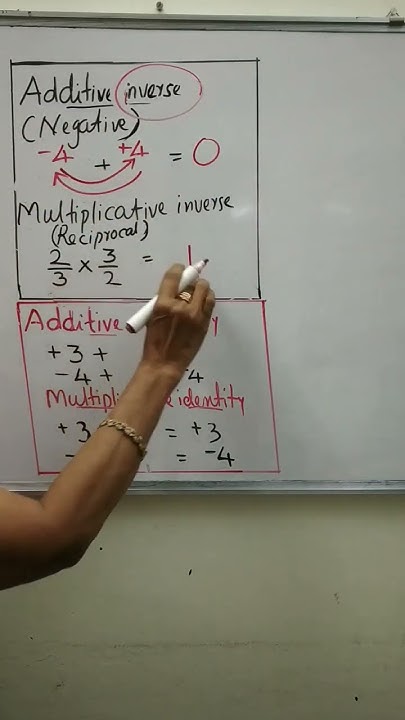 Additive inverse
(Negative)
-4 + +4 = 0
Multiplicative inverse
(Reciprocal)
2/3 × 3/2 = 1
Additive
+3 +
-4 + -4
identity
+3 = +3
- = -4